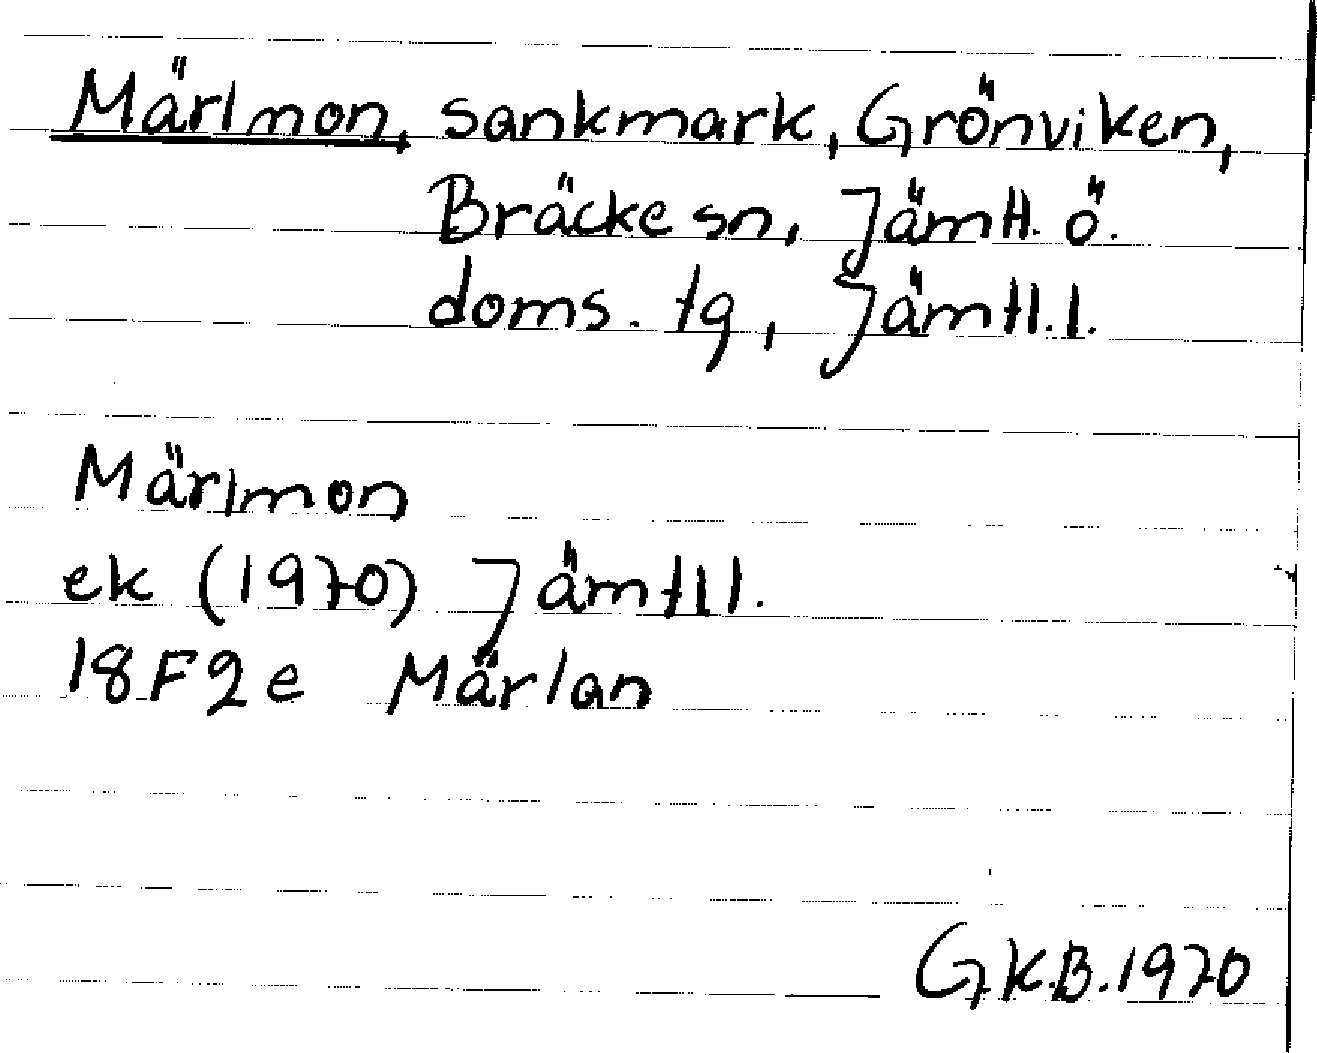 Märlmon, sankmark, Grönviken,
Bräcke sn, Jämtl. ö.
doms. tg, Jämtl. l.
Märlmon
ek (1970) Jämtl l.
18F2e Märlan
G.K.B. 1970